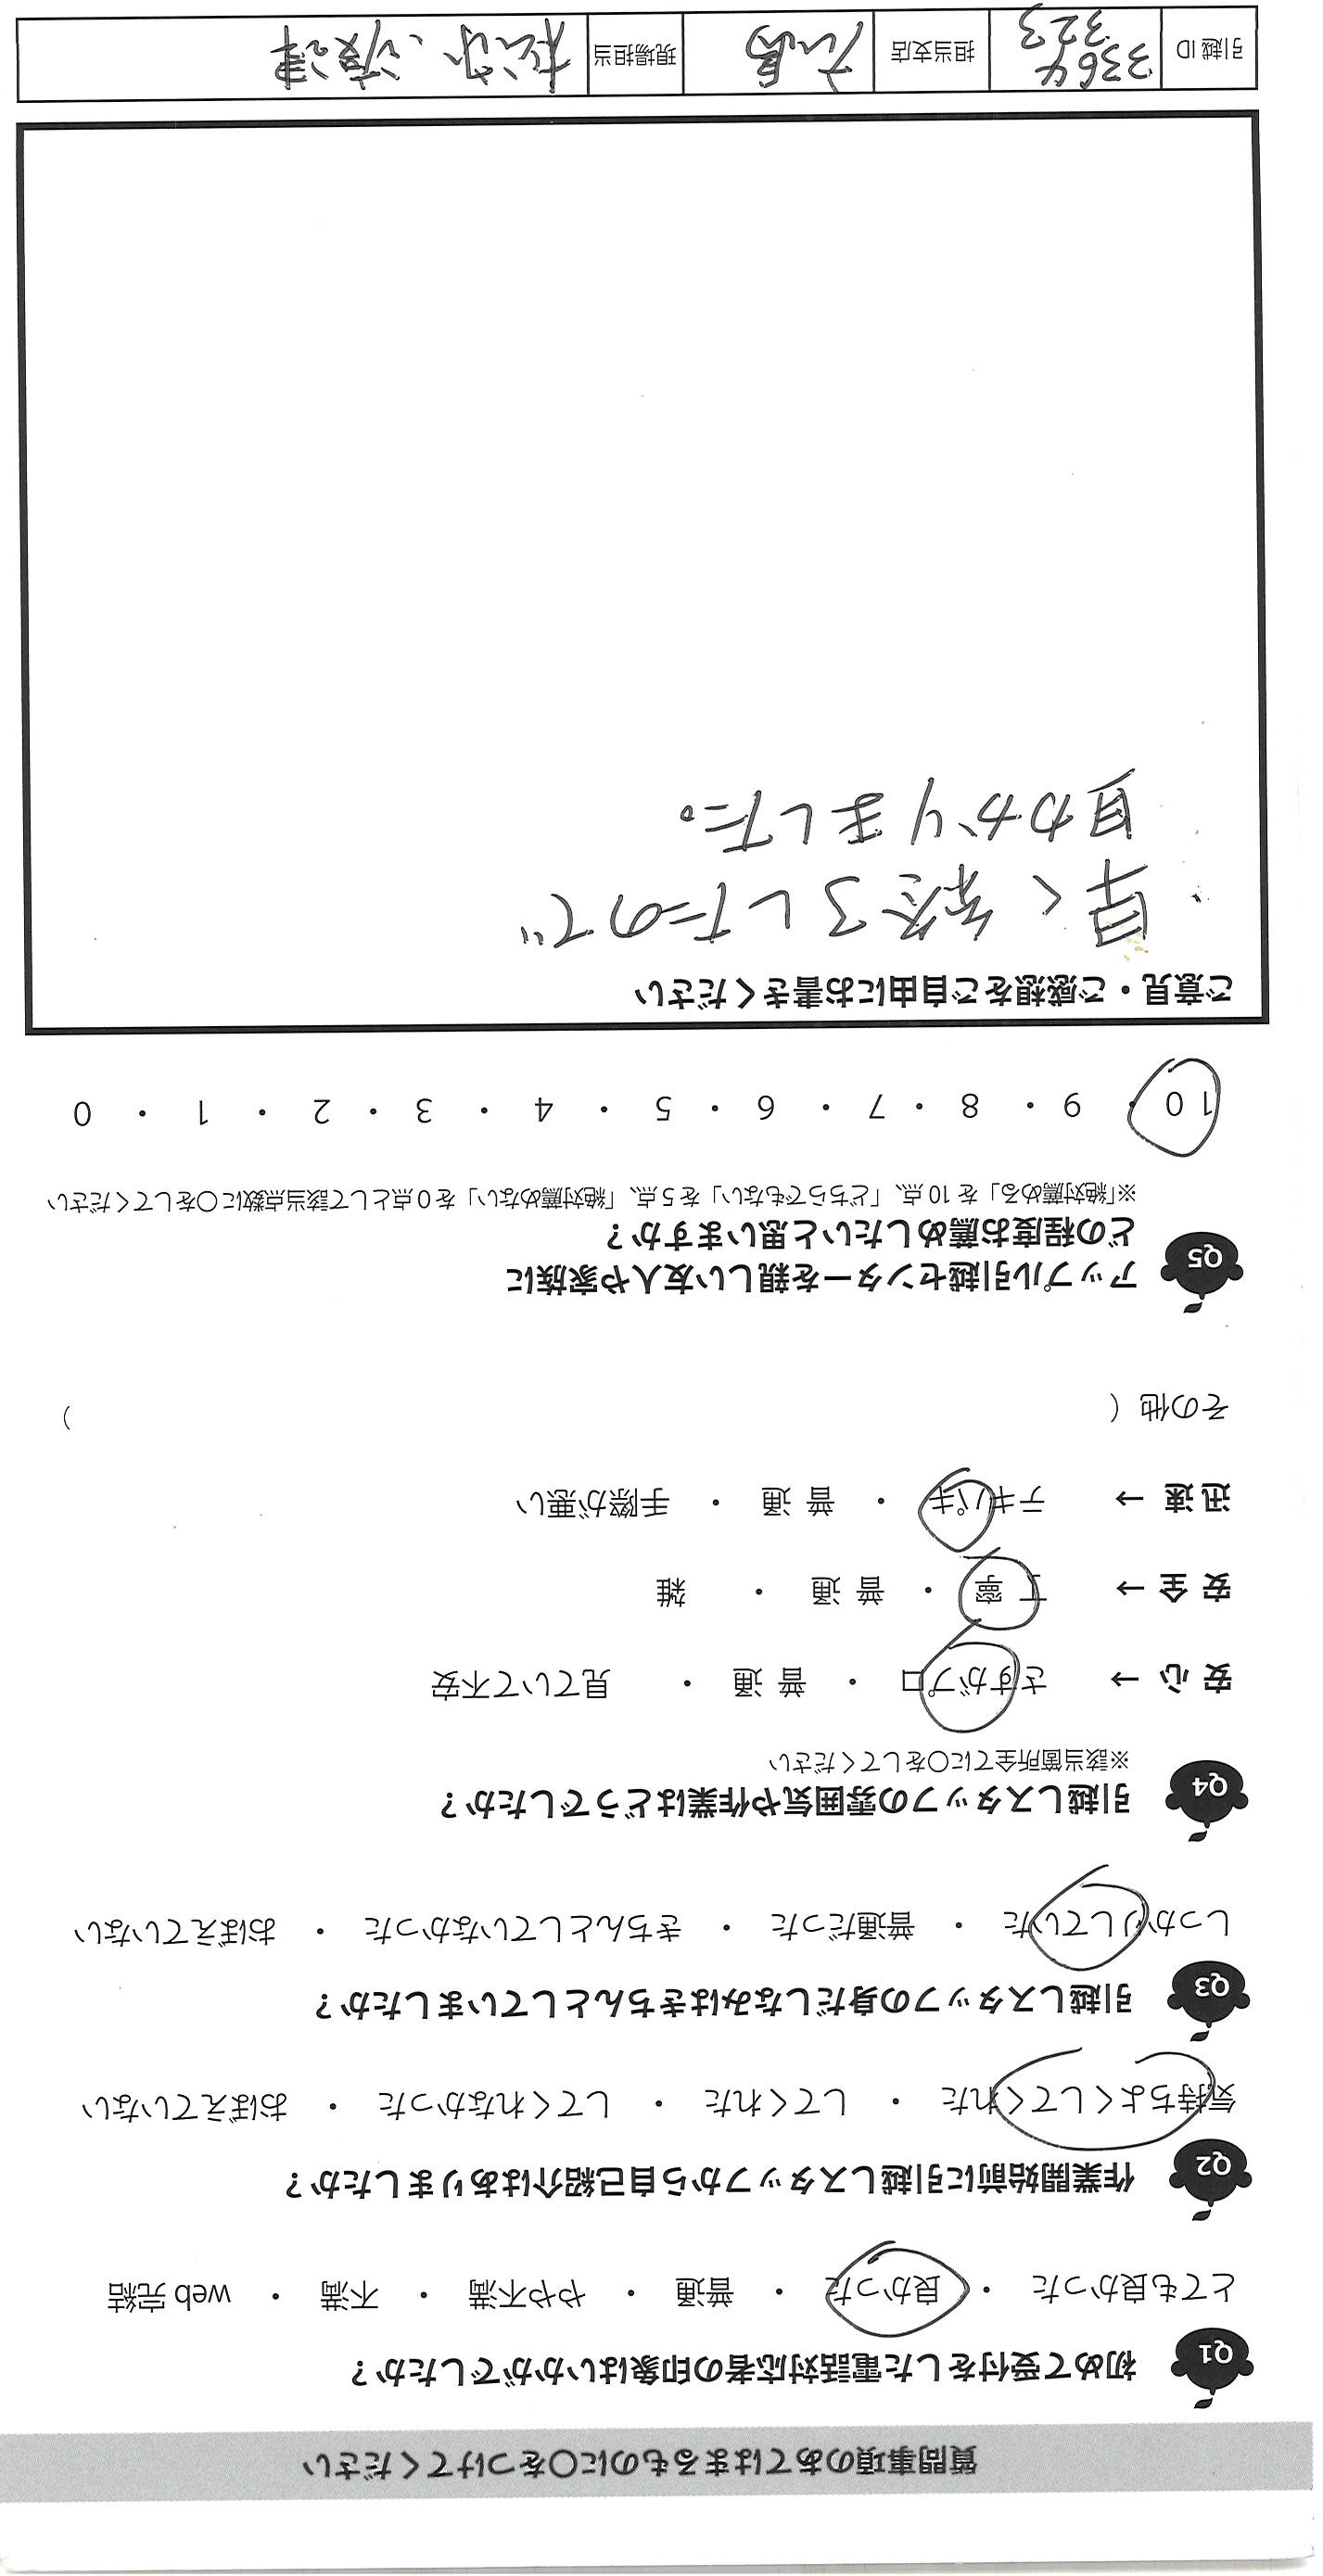 質問事項のあてはまるものに〇をつけてください
Q1 初めて受付をした電話対応者の印象はいかがでしたか？
とても良かった ・ 良かった ・ 普通 ・ やや不満 ・ 不満 ・ web 完結
Q2 作業開始前に引越しスタッフから自己紹介はありましたか？
気持ちよくしてくれた ・ してくれた ・ してくれなかった ・ おぼえていない
Q3 引越しスタッフの身だしなみはきちんとしていましたか？
しっかりしていた ・ 普通だった ・ きちんとしていなかった ・ おぼえていない
Q4 引越しスタッフの雰囲気や作業はどうでしたか？
※該当箇所全てに〇をしてください
安 心 → さすがプロ ・ 普 通 ・ 見ていて不安
安 全 → 丁 寧 ・ 普 通 ・ 雑
迅 速 → テキパキ ・ 普 通 ・ 手際が悪い
その他（ ）
Q5 アップル引越センターを親しい友人や家族に
どの程度お薦めしたいと思いますか？
※「絶対薦める」を 10 点、「どちらでもない」を 5 点、「絶対薦めない」を 0 点として該当点数に〇をしてください
10 ・ 9 ・ 8 ・ 7 ・ 6 ・ 5 ・ 4 ・ 3 ・ 2 ・ 1 ・ 0
ご意見・ご感想をご自由にお書きください
・早く終了したので
助かりました。
引越 ID 3364
323
担当支店 広島 現場担当